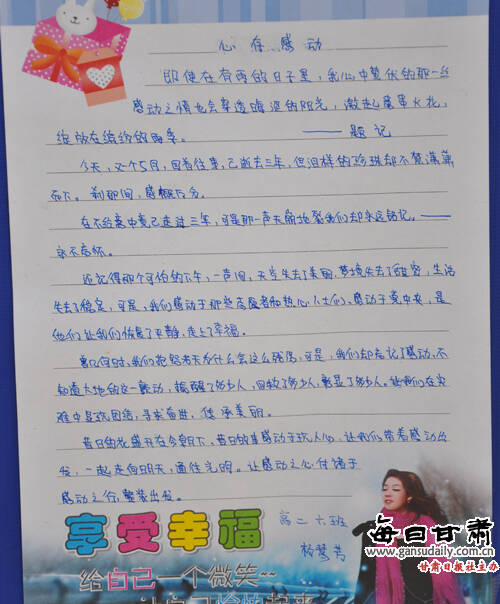 心存感动
即使在有雨的日子里,我心中蛰伏的那一丝
感动之情也会穿透晦涩的阳光,激起星星火花,
绽放在缤纷的雨季。 ——题记
今天,又个5月,回首往事,已逝去三年,但泪样的珍珠却不禁潸潸
而下。刹那间,感概万分。
在不经意中竟已走过三年,可是那一声天崩地裂我们却永远铭记。——
永不忘怀。
还记得那个可怕的下午,一声间,天空失去了美丽,梦境失去了甜密,生活
失去了稳定,可是,我们感动于那些志愿者和热心人士们。感动于党中央,是
他们让我们恢复了平静,走上了幸福。
曾几何时,我们抱怨老天为什么会这么残忍,可是,我们却忘记了感动,不
知道大地的这一颤动,摇醒了多少人,回报了多少人,彰显了多少人。让我们在灾
难中自强团结,寻求奋进,传承美丽。
昔日的花盛开在今朝下,昔日故事感动于我人心,让我们带着感动出
发,一起走向明天,通往光明。让感动之心付诸于
感动之行,整装出发。
高二十班
享受幸福
给自己一个微笑~~
每日甘肃
www.gansudaily.com.cn
甘肃日报社主办